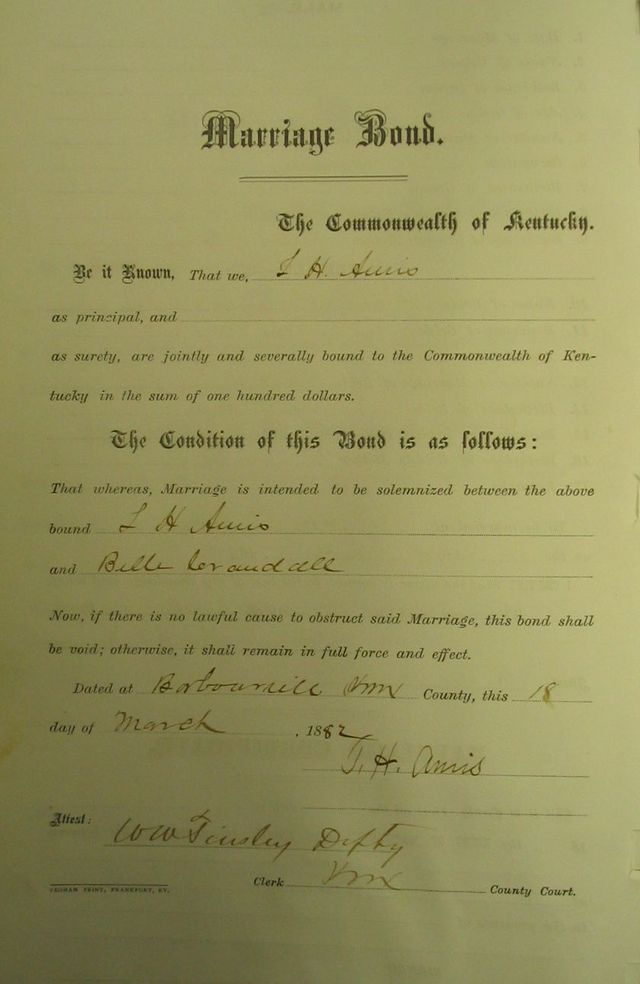 Marriage Bond.
The Commonwealth of Kentucky.
Be it Known, That we, L H. Amis
as principal, and
as surety, are jointly and severally bound to the Commonwealth of Ken-
tucky in the sum of one hundred dollars.
The Condition of this Bond is as follows:
That whereas, Marriage is intended to be solemnized between the above
bound L H Amis
and Belle Crandall
Now, if there is no lawful cause to obstruct said Marriage, this bond shall
be void; otherwise, it shall remain in full force and effect.
Dated at Barboursville Knox County, this 18
day of March, 1882
H. Amis
Attest:
W W Tinsley Depty
Clerk Knox County Court.
YEOMAN PRINT, FRANKFORT, KY.